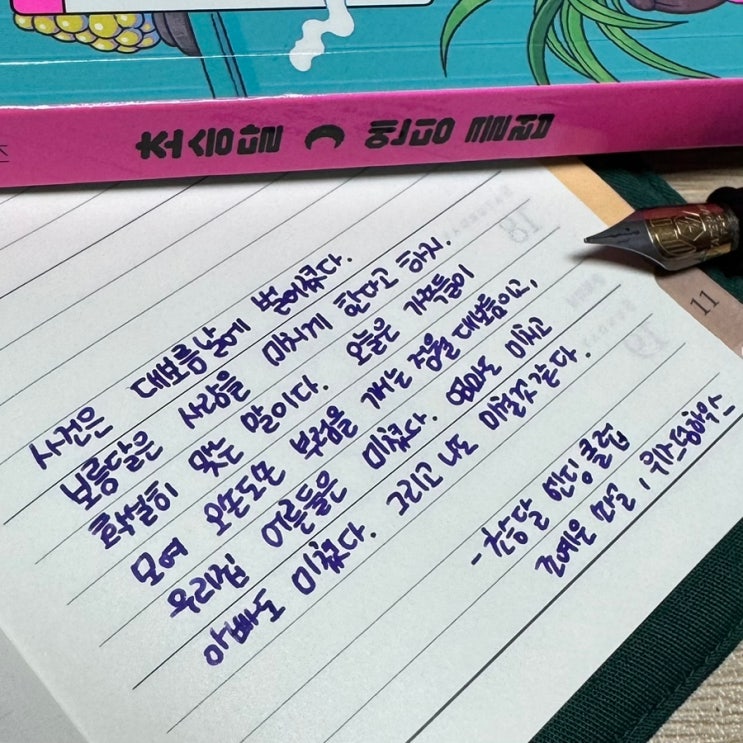 초승달 엔딩 클럽
사건은 대보름날에 벌어졌다.
보름달은 사람을 미치게 한다고 하지.
확실히 맞는 말이다. 오늘은 가족들이
모여 오손도손 부럼을 깨는 정월 대보름이고,
우리집 어른들은 미쳤다. 엄마도 미치고
아빠도 미쳤다. 그리고 나도 미칠것 같다.
- 초승달 엔딩클럽
조예은 , 위즈덤하우스
11